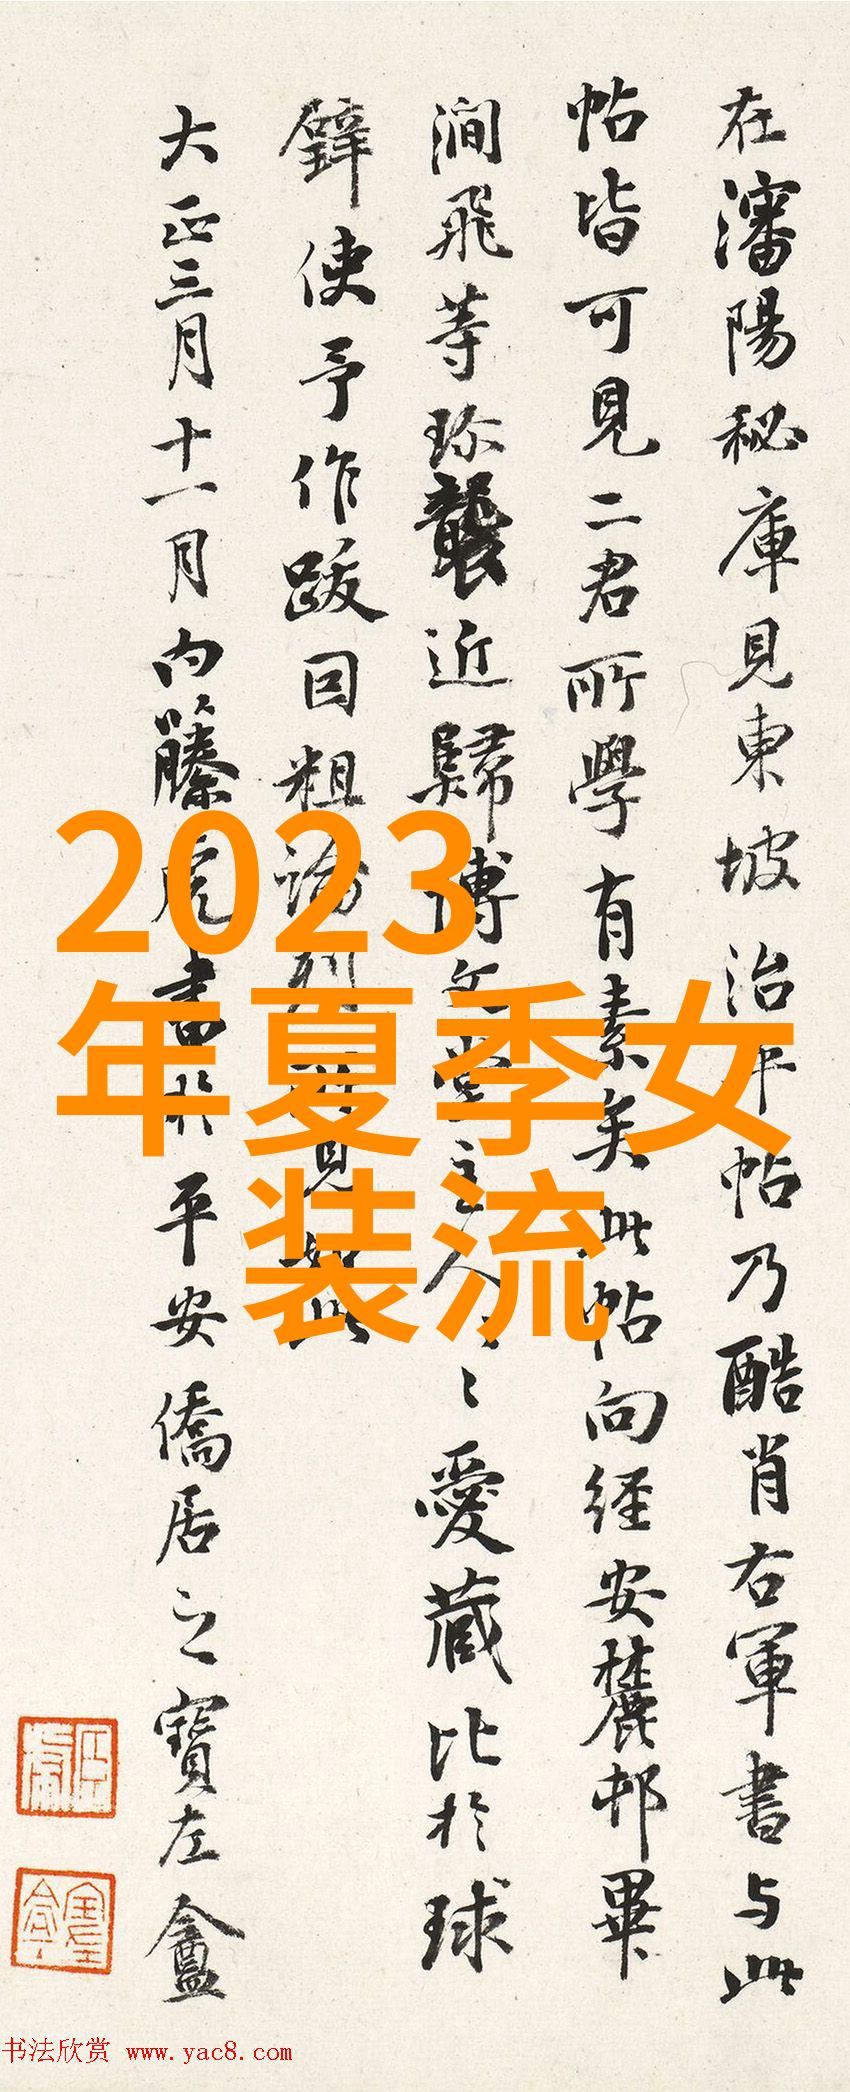 在瀋陽秘庫見東坡治平帖乃酷肖右軍書与此
帖皆可見二君所學有素矣此帖向經安麓邨畢
澗飛等珍襲近歸博文堂主人愛藏比於球
璧使予作跋因粗論列所見如此
大正三月十一月內藤虎書於平安僑居之寶左盦
2023
年夏季女
装流
书法欣赏 www.yac8.com